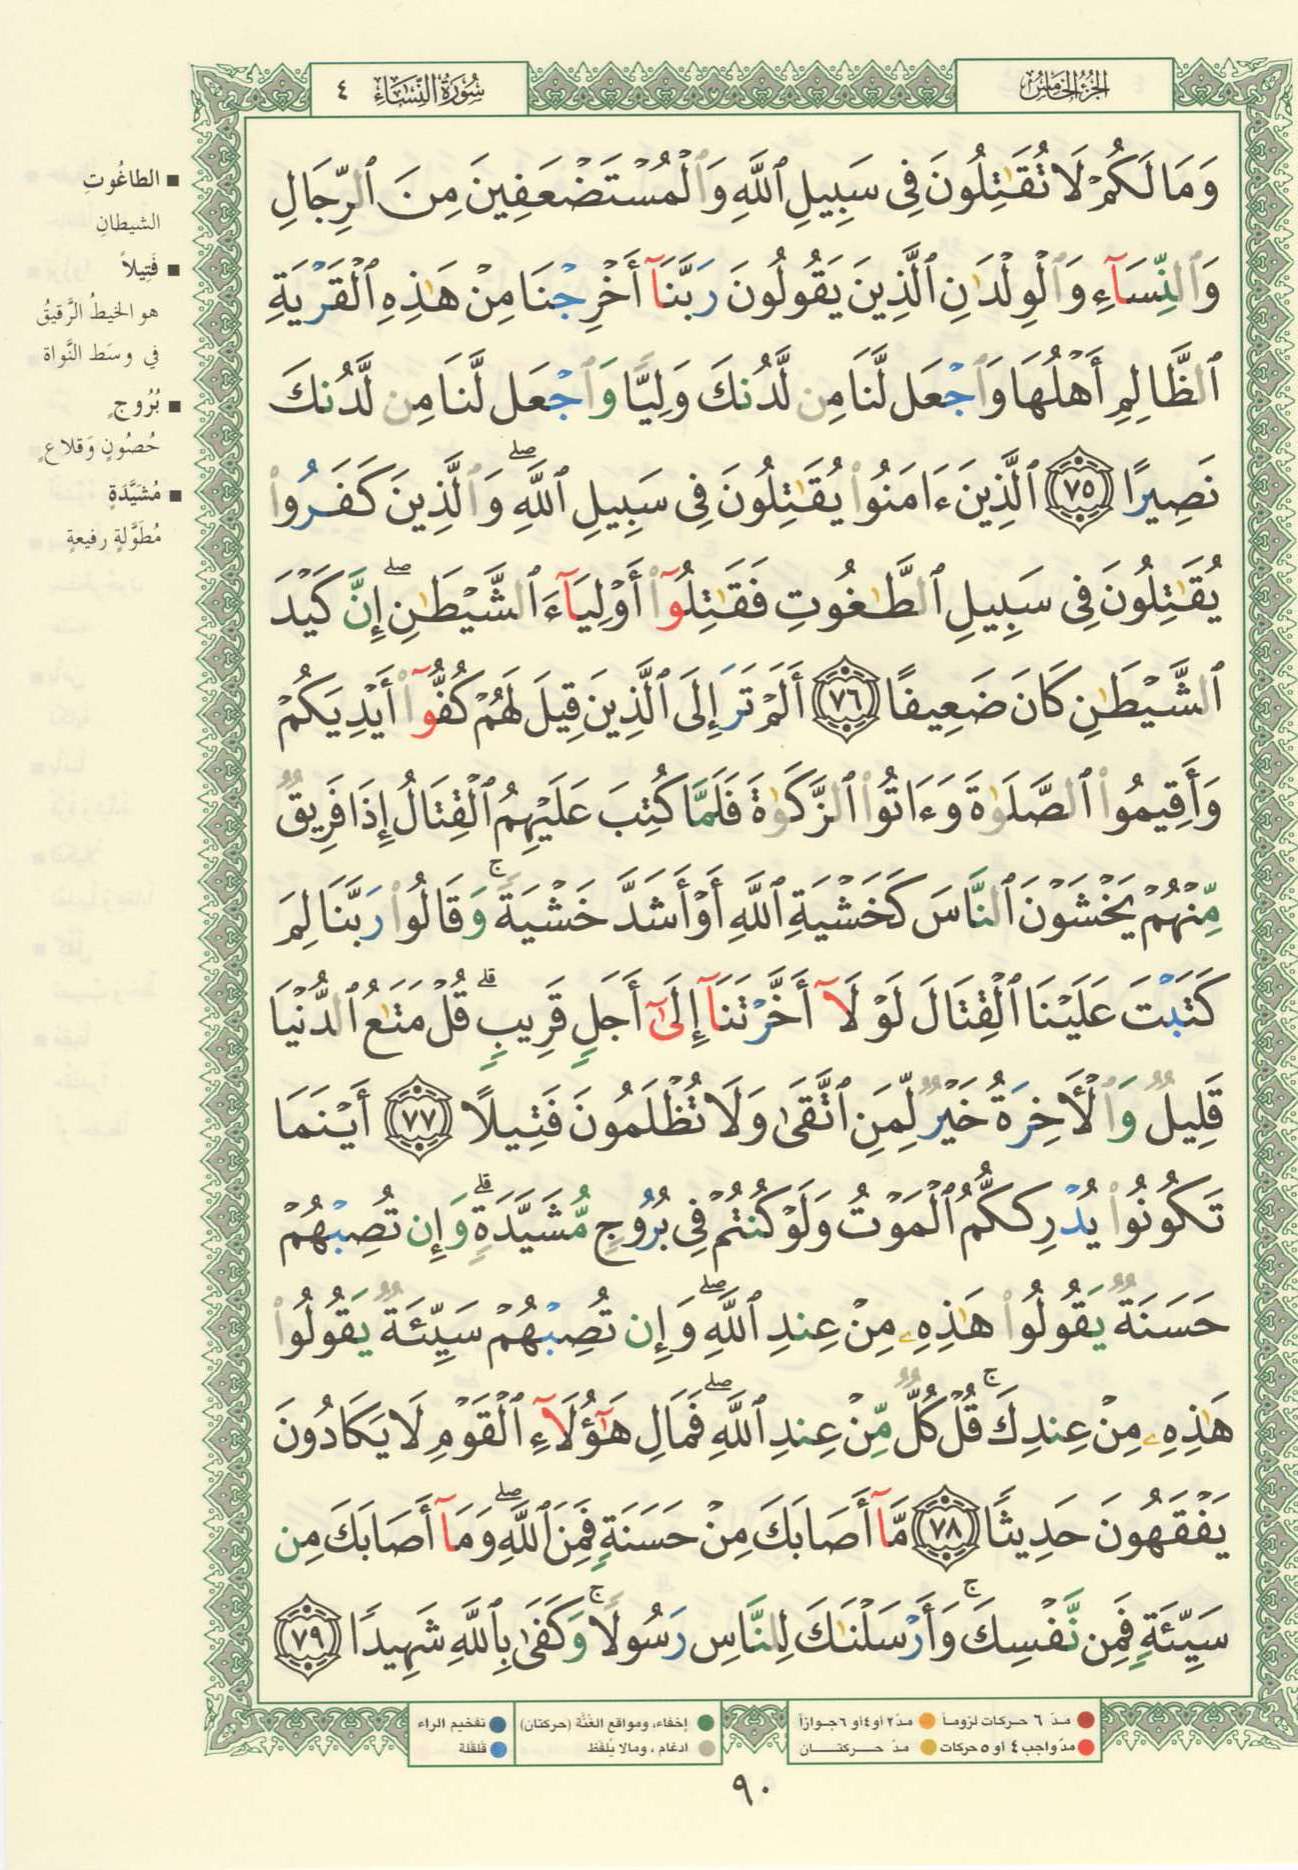 الجزء الخامس
سورة النساء ٤
وَمَا لَكُمْ لَا تُقَٰتِلُونَ فِى سَبِيلِ ٱللَّهِ وَٱلْمُسْتَضْعَفِينَ مِنَ ٱلرِّجَالِ
وَٱلنِّسَآءِ وَٱلْوِلْدَٰنِ ٱلَّذِينَ يَقُولُونَ رَبَّنَآ أَخْرِجْنَا مِنْ هَٰذِهِ ٱلْقَرْيَةِ
ٱلظَّالِمِ أَهْلُهَا وَٱجْعَل لَّنَا مِن لَّدُنكَ وَلِيًّا وَٱجْعَل لَّنَا مِن لَّدُنكَ
نَصِيرًا ٧٥ ٱلَّذِينَ ءَامَنُوا۟ يُقَٰتِلُونَ فِى سَبِيلِ ٱللَّهِ ۖ وَٱلَّذِينَ كَفَرُوا۟
يُقَٰتِلُونَ فِى سَبِيلِ ٱلطَّٰغُوتِ فَقَٰتِلُوٓا۟ أَوْلِيَآءَ ٱلشَّيْطَٰنِ ۖ إِنَّ كَيْدَ
ٱلشَّيْطَٰنِ كَانَ ضَعِيفًا ٧٦ أَلَمْ تَرَ إِلَى ٱلَّذِينَ قِيلَ لَهُمْ كُفُّوٓا۟ أَيْدِيَكُمْ
وَأَقِيمُوا۟ ٱلصَّلَوٰةَ وَءَاتُوا۟ ٱلزَّكَوٰةَ فَلَمَّا كُتِبَ عَلَيْهِمُ ٱلْقِتَالُ إِذَا فَرِيقٌ
مِّنْهُمْ يَخْشَوْنَ ٱلنَّاسَ كَخَشْيَةِ ٱللَّهِ أَوْ أَشَدَّ خَشْيَةً ۚ وَقَالُوا۟ رَبَّنَا لِمَ
كَتَبْتَ عَلَيْنَا ٱلْقِتَالَ لَوْ لَآ أَخَّرْتَنَآ إِلَىٰٓ أَجَلٍ قَرِيبٍ ۗ قُلْ مَتَٰعُ ٱلدُّنْيَا
قَلِيلٌ وَٱلْأَخِرَةُ خَيْرٌ لِّمَنِ ٱتَّقَىٰ وَلَا تُظْلَمُونَ فَتِيلًا ٧٧ أَيْنَمَا
تَكُونُوا۟ يُدْرِككُّمُ ٱلْمَوْتُ وَلَوْ كُنتُمْ فِى بُرُوجٍ مُّشَيَّدَةٍ ۗ وَإِن تُصِبْهُمْ
حَسَنَةٌ يَقُولُوا۟ هَٰذِهِۦ مِنْ عِندِ ٱللَّهِ ۖ وَإِن تُصِبْهُمْ سَيِّئَةٌ يَقُولُوا۟
هَٰذِهِۦ مِنْ عِندِكَ ۚ قُلْ كُلٌّ مِّنْ عِندِ ٱللَّهِ ۖ فَمَالِ هَٰٓؤُلَآءِ ٱلْقَوْمِ لَا يَكَادُونَ
يَفْقَهُونَ حَدِيثًا ٧٨ مَّآ أَصَابَكَ مِنْ حَسَنَةٍ فَمِنَ ٱللَّهِ ۖ وَمَآ أَصَابَكَ مِن
سَيِّئَةٍ فَمِن نَّفْسِكَ ۚ وَأَرْسَلْنَٰكَ لِلنَّاسِ رَسُولًا ۚ وَكَفَىٰ بِٱللَّهِ شَهِيدًا ٧٩
■ الطاغُوتِ
الشيطانِ
■ فَتِيلاً
هو الخيطُ الرَّقيقُ
في وسَط النَّواة
■ بُرُوجٍ
حُصُونٍ وَقلاعٍ
■ مُشَيَّدَةٍ
مُطَوَّلةٍ رفيعةٍ
مدّ ٦ حركات لزوماً
مدّ ٢ أو ٤ أو ٦ جوازاً
مدّ واجب ٤ أو ٥ حركات
مدّ حركتان
إخفاء، ومواقع الغُنَّة (حركتان)
ادغام ، ومالا يُلفَظ
تفخيم الراء
قلقلة
٩٠